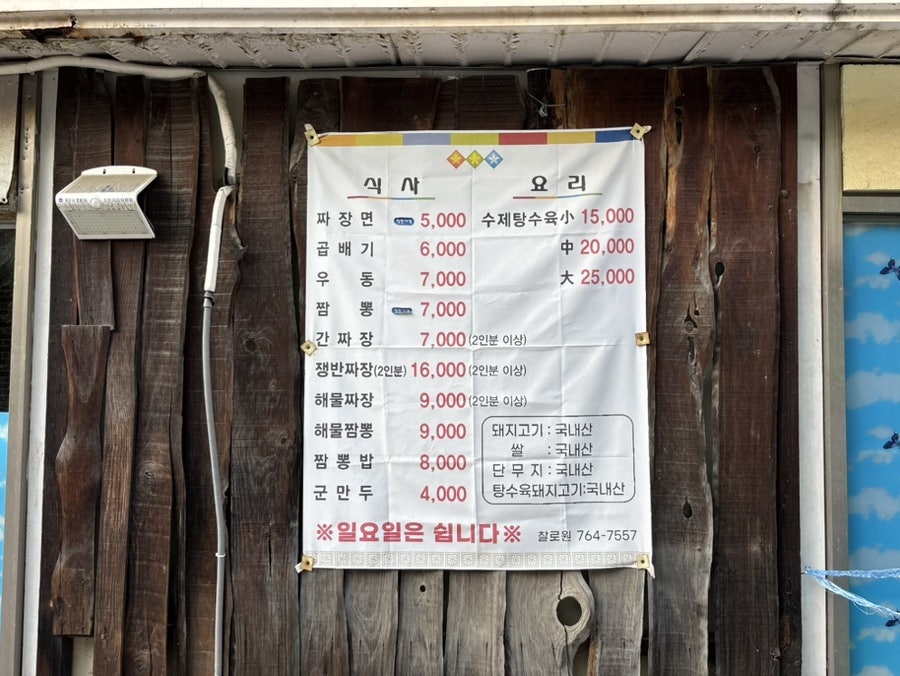 식 사
짜 장 면 5,000
곱 배 기 6,000
우 동 7,000
짬 뽕 7,000
간 짜 장 7,000 (2인분 이상)
쟁반짜장(2인분) 16,000 (2인분 이상)
해물짜장 9,000 (2인분 이상)
해물짬뽕 9,000
짬 뽕 밥 8,000
군 만 두 4,000
요 리
수제탕수육 小 15,000
中 20,000
大 25,000
돼지고기 : 국내산
쌀 : 국내산
단 무 지 : 국내산
탕수육돼지고기:국내산
※일요일은 쉽니다※
찰로원 764-7557